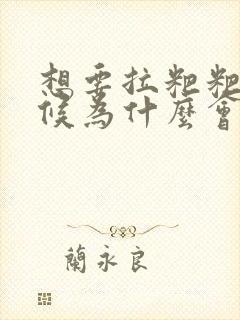 想要拉粑粑
候為什麼會
蘭永良